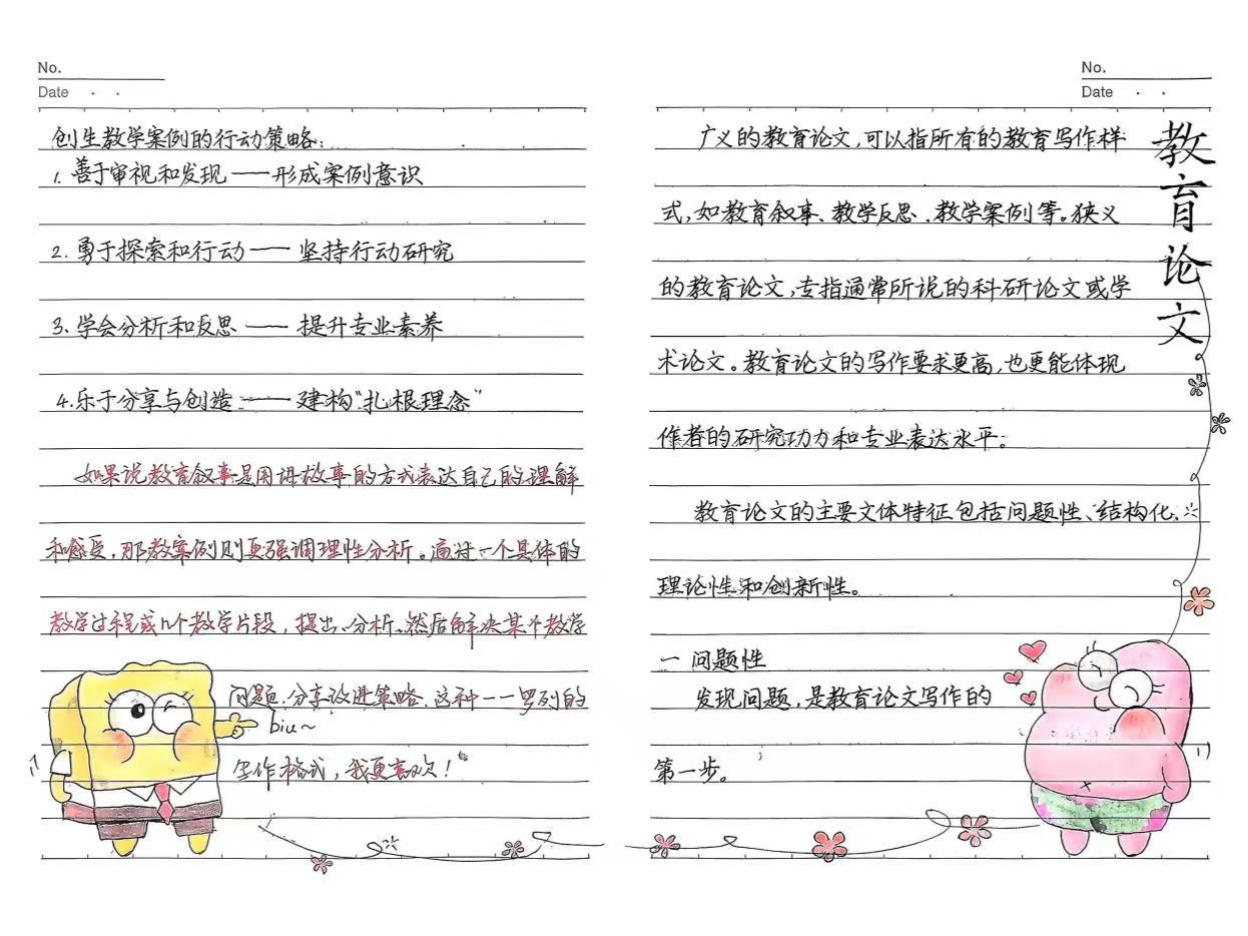 No.
Date
创生教学案例的行动策略：
1. 善于审视和发现——形成案例意识
2. 勇于探索和行动——坚持行动研究
3. 学会分析和反思——提升专业素养
4. 乐于分享与创造——建构“扎根理念”
如果说教育叙事是用讲故事的方式表达自己的理解
和感受，那教案例则更强调理性分析。通过一个具体的
教学过程或几个教学片段，提出、分析、然后解决某个教学
问题，分享改进策略，这种一一罗列的
写作格式，我更喜欢！
biu~
No.
Date
教育论文
广义的教育论文，可以指所有的教育写作样
式，如教育叙事、教学反思、教学案例等。狭义
的教育论文，专指通常所说的科研论文或学
术论文。教育论文的写作要求更高，也更能体现
作者的研究功力和专业表达水平。
教育论文的主要文体特征包括问题性、结构化、
理论性和创新性。
一 问题性
发现问题，是教育论文写作的
第一步。